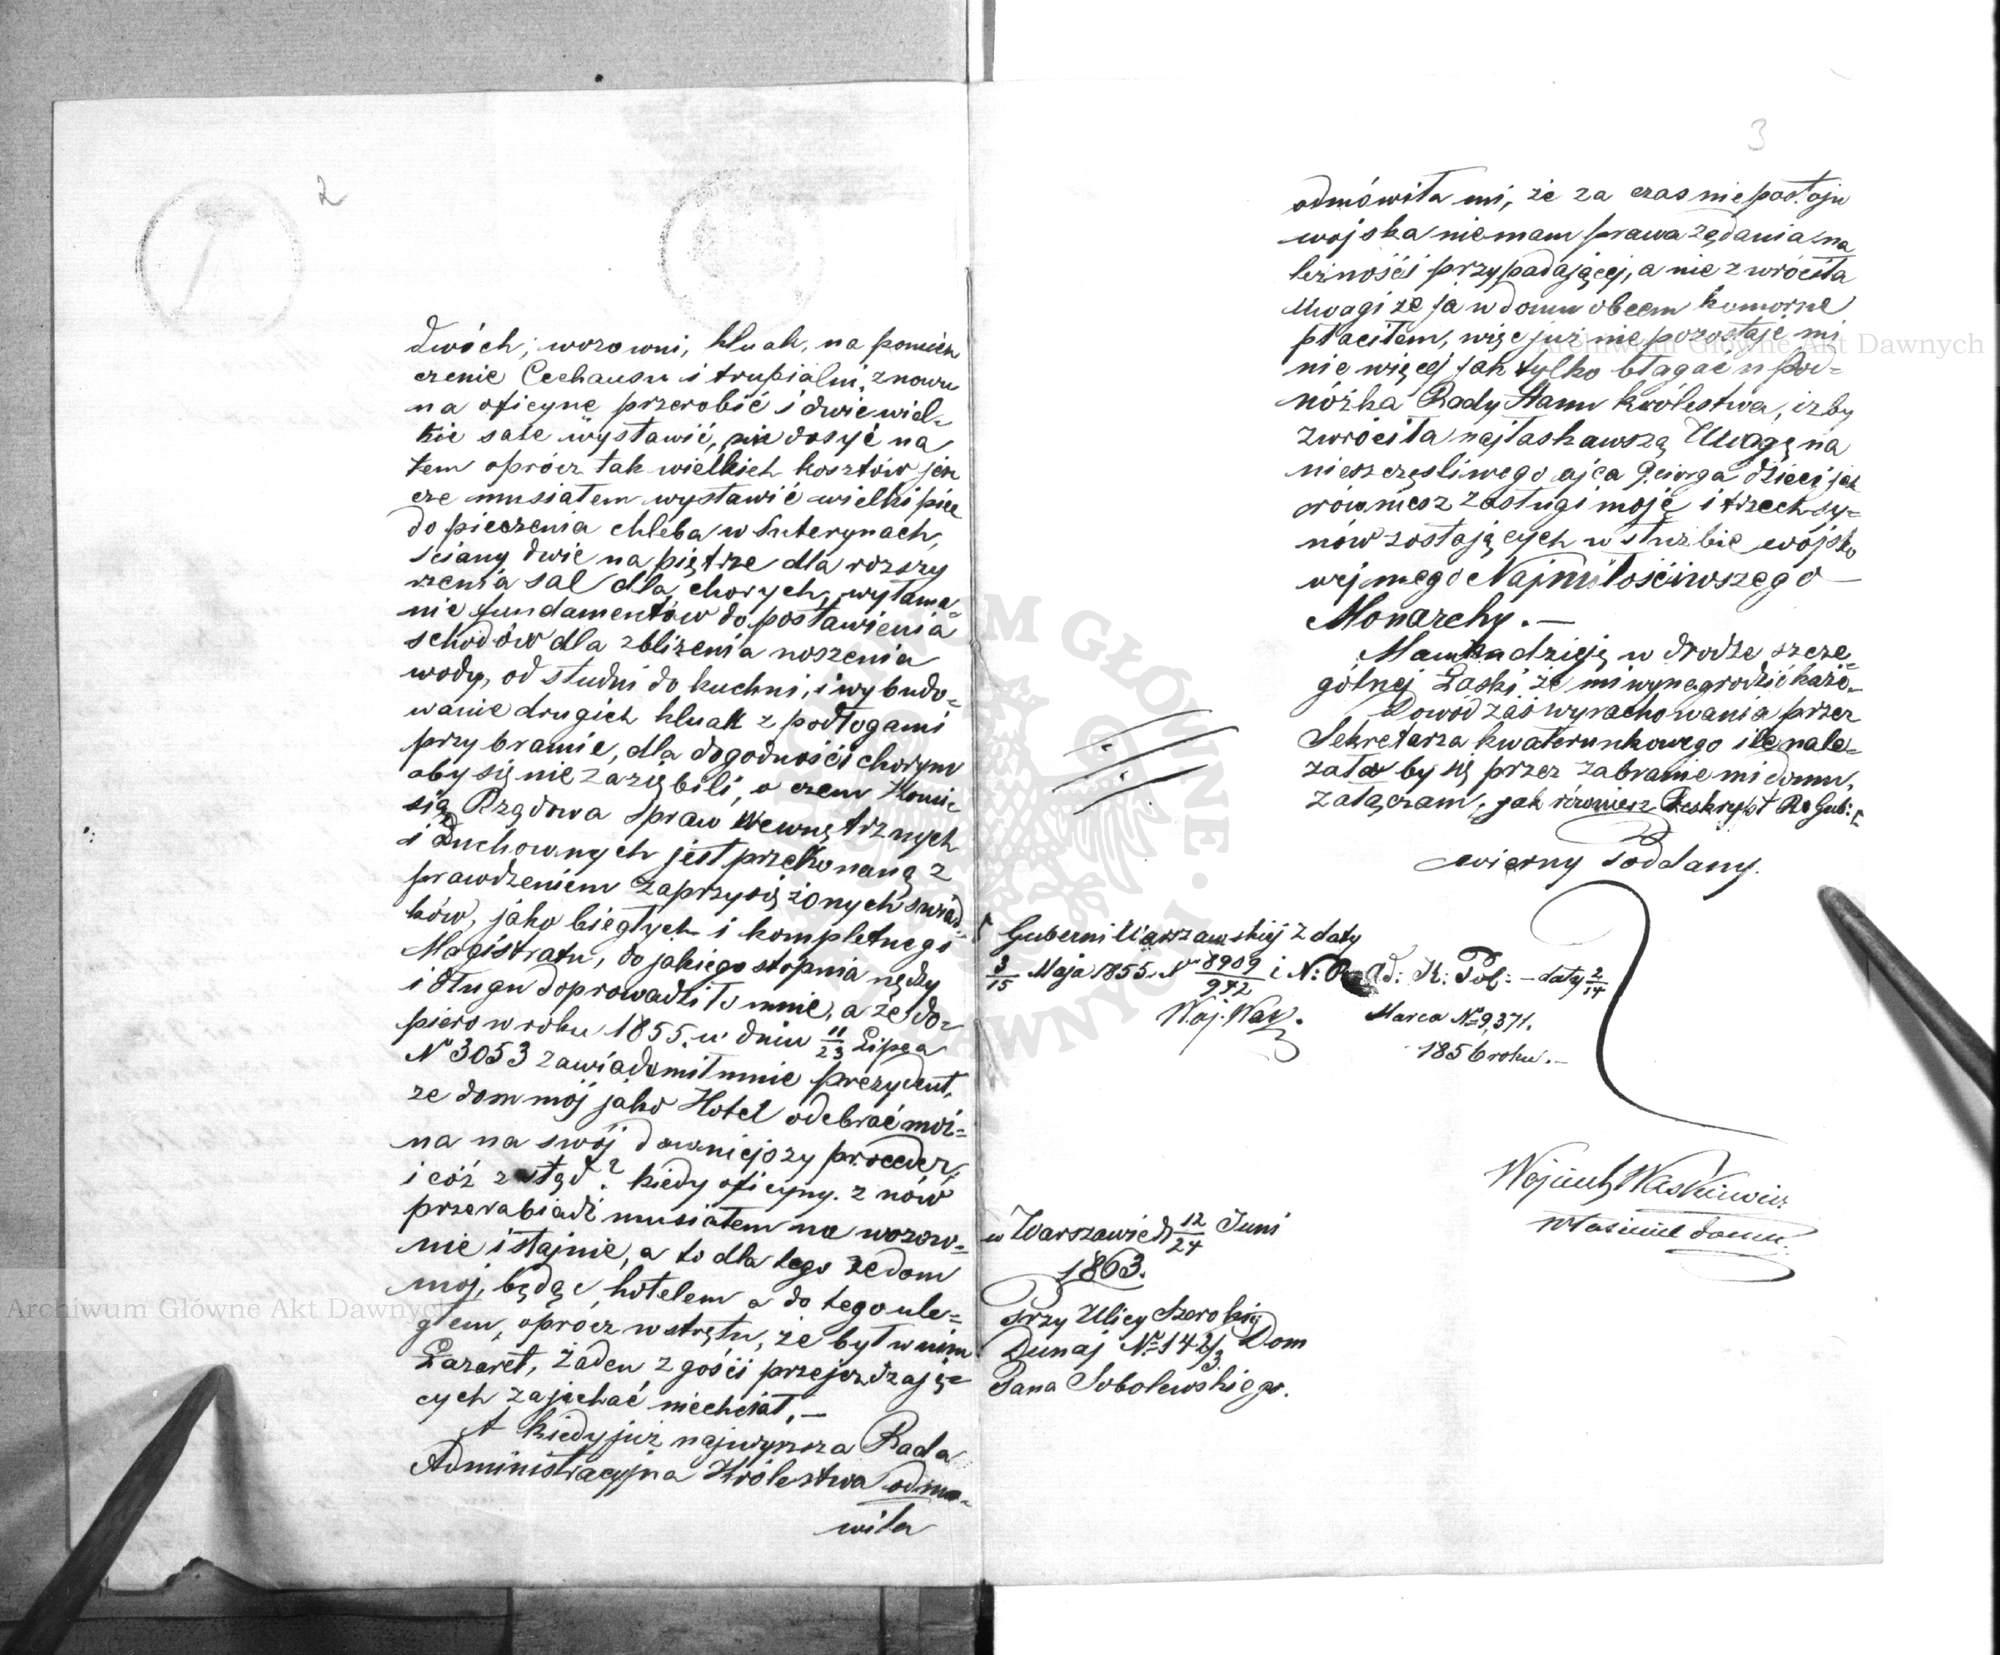 2
dwóch; wozowni, kluak, na pomiesz
czenie Cechausu i trupialni, znowu
na oficynę przerobić i dwie wiel-
kie sale wystawić, nie dosyć na
tem oprócz tak wielkich kosztów jesz
cze musiałem wystawić wielki piec
do pieczenia chleba w Suterynach,
ściany dwie na piętrze dla rozszy
rzenia sal dla chorych, wyłama-
nie fundamentów do postawienia
schodów dla zbliżenia noszenia
wody, od studni do kuchni, i wybudo-
wanie drugich kluak z podłogami
przy bramie, dla dogodności chorym
aby się nie zaziębili, o czem Komi-
sią Rządowa spraw Wewnętrznych
i Duchownych jest przekonaną z
prawdzeniem zaprzysiężonych świad-
ków, jako biegłych i kompletnego
Magistratu, do jakiego stopnia nędzy
i długu doprowadziło mnie, a że do-
piero w roku 1855. w dniu 11/23 Lipca
N 3053 zawiadomił mnie prezydent,
że dom mój jako Hotel odebrać moż-
na na swój dawniejszy proceder,
i cóż z stąd? kiedy oficyny z nów
przerabiadź musiałem na wozow-
nie i stajnie, a to dla tego że dom
mój, będąc hotelem a do tego ule-
głem, oprócz wstrętu, że był w nim
Łazaret, żaden z gości przejerdzają-
cych zajechać niechciał. —
A kiedy już najwyższa Rada
Administracyjna Królestwa odmó-
wiła
3
odmówiła mi, że za czas nie postoju
wojska nie mam prawa żądania na
leżności przypadającej, a nie zwróciła
Uwagi że ja w domu obcem komorne
płaciłem, więc już nie pozostaje mi
nic więcej jak tylko błagać u Pod-
nóżka Rady Stanu Królestwa, iżby
zwróciła najłaskawszą Uwagę na
nieszczęśliwego ojca 9ciorga dzieci jak
równiesz zasługi moje i trzech sy-
nów zostających w służbie wojsko
wej mego Najmiłościwszego —
Monarchy. —
Mam nadzieję w drodze szcze-
gólnej Łaski, że mi wynagrodzić każe.
Dowód zaś wyrachowania przez
Sekretarza kwaterunkowego ile nale-
żała by się przez zabranie mi domu,
załączam, jak również Reskrypt Rz Gub:
wierny Poddany.
Guberni Warszawskiej z daty
3/15 Maja 1855. N 8909/972 i N: Ad: K: Pol: — daty 2/14
Woj. Was. Marca N 9,371.
1856 roku. —
Wojciech Waśkiewicz
właściciel domu.
w Warszawie d 12/24 Juni
1863.
Przy Ulicy Szerokiej
Dunaj N 142/3. Dom
Pana Sobolewskiego.
Archiwum Główne Akt Dawnych
Archiwum Główne Akt Dawnych
ARCHIWUM GŁÓWNE AKT DAWNYCH